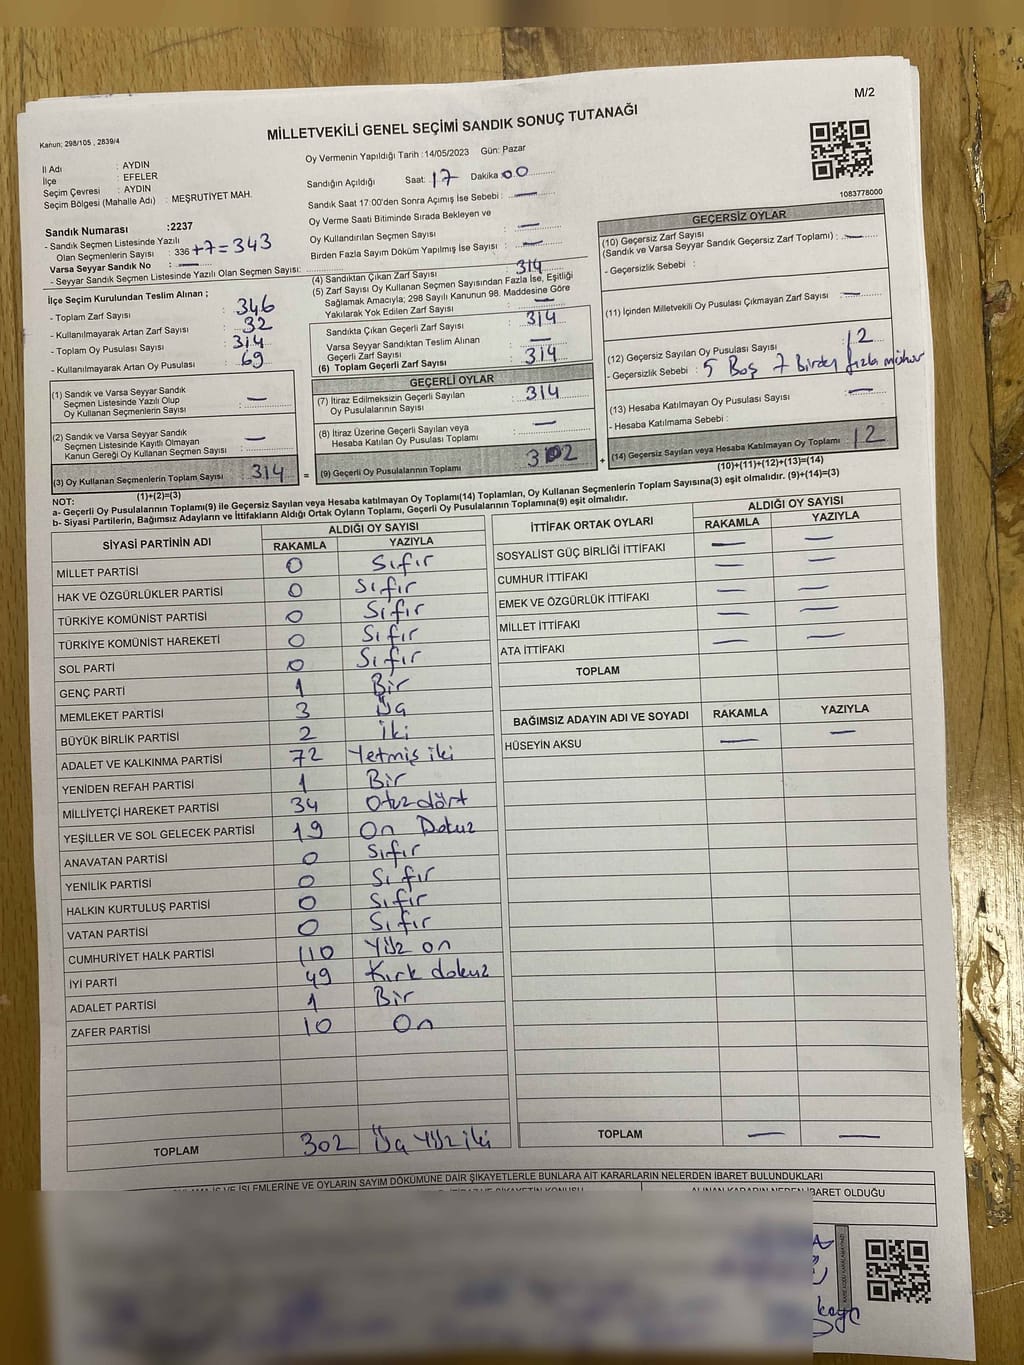 M/2
MİLLETVEKİLİ GENEL SEÇİMİ SANDIK SONUÇ TUTANAĞI
Kanun: 298/105 , 2839/4
Oy Vermenin Yapıldığı Tarih : 14/05/2023 Gün: Pazar
İl Adı : AYDIN
İlçe : EFELER
Seçim Çevresi : AYDIN
Seçim Bölgesi (Mahalle Adı) : MEŞRUTİYET MAH.
Sandığın Açıldığı Saat: 17 Dakika 00
Sandık Saat 17:00'den Sonra Açımış İse Sebebi : —
Oy Verme Saati Bitiminde Sırada Bekleyen ve
Oy Kullandırılan Seçmen Sayısı : —
Birden Fazla Sayım Döküm Yapılmış İse Sayısı : —
1083778000
Sandık Numarası :2237
- Sandık Seçmen Listesinde Yazılı
Olan Seçmenlerin Sayısı : 336 +7=343
Varsa Seyyar Sandık No : —
- Seyyar Sandık Seçmen Listesinde Yazılı Olan Seçmen Sayısı:
İlçe Seçim Kurulundan Teslim Alınan ;
- Toplam Zarf Sayısı : 346
- Kullanılmayarak Artan Zarf Sayısı : 32
- Toplam Oy Pusulası Sayısı : 314
- Kullanılmayarak Artan Oy Pusulası : 69
(1) Sandık ve Varsa Seyyar Sandık
Seçmen Listesinde Yazılı Olup
Oy Kullanan Seçmenlerin Sayısı : —
(2) Sandık ve Varsa Seyyar Sandık
Seçmen Listesinde Kayıtlı Olmayan
Kanun Gereği Oy Kullanan Seçmen Sayısı : —
(3) Oy Kullanan Seçmenlerin Toplam Sayısı : 314
(1)+(2)=(3)
(4) Sandıktan Çıkan Zarf Sayısı : 314
(5) Zarf Sayısı Oy Kullanan Seçmen Sayısından Fazla İse, Eşitliği
Sağlamak Amacıyla; 298 Sayılı Kanunun 98. Maddesine Göre
Yakılarak Yok Edilen Zarf Sayısı : —
Sandıkta Çıkan Geçerli Zarf Sayısı : 314
Varsa Seyyar Sandıktan Teslim Alınan
Geçerli Zarf Sayısı : —
(6) Toplam Geçerli Zarf Sayısı : 314
GEÇERLİ OYLAR
(7) İtiraz Edilmeksizin Geçerli Sayılan
Oy Pusulalarının Sayısı : 314
(8) İtiraz Üzerine Geçerli Sayılan veya
Hesaba Katılan Oy Pusulası Toplamı : —
= (9) Geçerli Oy Pusulalarının Toplamı : 302 +
GEÇERSİZ OYLAR
(10) Geçersiz Zarf Sayısı
(Sandık ve Varsa Seyyar Sandık Geçersiz Zarf Toplamı) : —
- Geçersizlik Sebebi :
(11) İçinden Milletvekili Oy Pusulası Çıkmayan Zarf Sayısı : —
(12) Geçersiz Sayılan Oy Pusulası Sayısı : 12
- Geçersizlik Sebebi : 5 Boş 7 Birden fazla mühür
(13) Hesaba Katılmayan Oy Pusulası Sayısı : —
- Hesaba Katılmama Sebebi :
(14) Geçersiz Sayılan veya Hesaba Katılmayan Oy Toplamı : 12
(10)+(11)+(12)+(13)=(14)
NOT:
a- Geçerli Oy Pusulalarının Toplamı(9) ile Geçersiz Sayılan veya Hesaba katılmayan Oy Toplamı(14) Toplamları, Oy Kullanan Seçmenlerin Toplam Sayısına(3) eşit olmalıdır. (9)+(14)=(3)
b- Siyasi Partilerin, Bağımsız Adayların ve İttifakların Aldığı Ortak Oyların Toplamı, Geçerli Oy Pusulalarının Toplamına(9) eşit olmalıdır.
SİYASİ PARTİNİN ADI ALDIĞI OY SAYISI
RAKAMLA YAZIYLA
MİLLET PARTİSİ 0 Sıfır
HAK VE ÖZGÜRLÜKLER PARTİSİ 0 Sıfır
TÜRKİYE KOMÜNİST PARTİSİ 0 Sıfır
TÜRKİYE KOMÜNİST HAREKETİ 0 Sıfır
SOL PARTİ 0 Sıfır
GENÇ PARTİ 1 Bir
MEMLEKET PARTİSİ 3 Üç
BÜYÜK BİRLİK PARTİSİ 2 İki
ADALET VE KALKINMA PARTİSİ 72 Yetmiş iki
YENİDEN REFAH PARTİSİ 1 Bir
MİLLİYETÇİ HAREKET PARTİSİ 34 Otuz dört
YEŞİLLER VE SOL GELECEK PARTİSİ 19 On Dokuz
ANAVATAN PARTİSİ 0 Sıfır
YENİLİK PARTİSİ 0 Sıfır
HALKIN KURTULUŞ PARTİSİ 0 Sıfır
VATAN PARTİSİ 0 Sıfır
CUMHURİYET HALK PARTİSİ 110 Yüz on
İYİ PARTİ 49 Kırk dokuz
ADALET PARTİSİ 1 Bir
ZAFER PARTİSİ 10 On
TOPLAM 302 Üç Yüz iki
İTTİFAK ORTAK OYLARI ALDIĞI OY SAYISI
RAKAMLA YAZIYLA
SOSYALİST GÜÇ BİRLİĞİ İTTİFAKI — —
CUMHUR İTTİFAKI — —
EMEK VE ÖZGÜRLÜK İTTİFAKI — —
MİLLET İTTİFAKI — —
ATA İTTİFAKI — —
TOPLAM
BAĞIMSIZ ADAYIN ADI VE SOYADI RAKAMLA YAZIYLA
HÜSEYİN AKSU — —
TOPLAM — —
İŞ VE İŞLEMLERİNE VE OYLARIN SAYIM DÖKÜMÜNE DAİR ŞİKAYETLERLE BUNLARA AİT KARARLARIN NELERDEN İBARET BULUNDUKLARI
ALINAN KARARIN NEDEN İBARET OLDUĞU